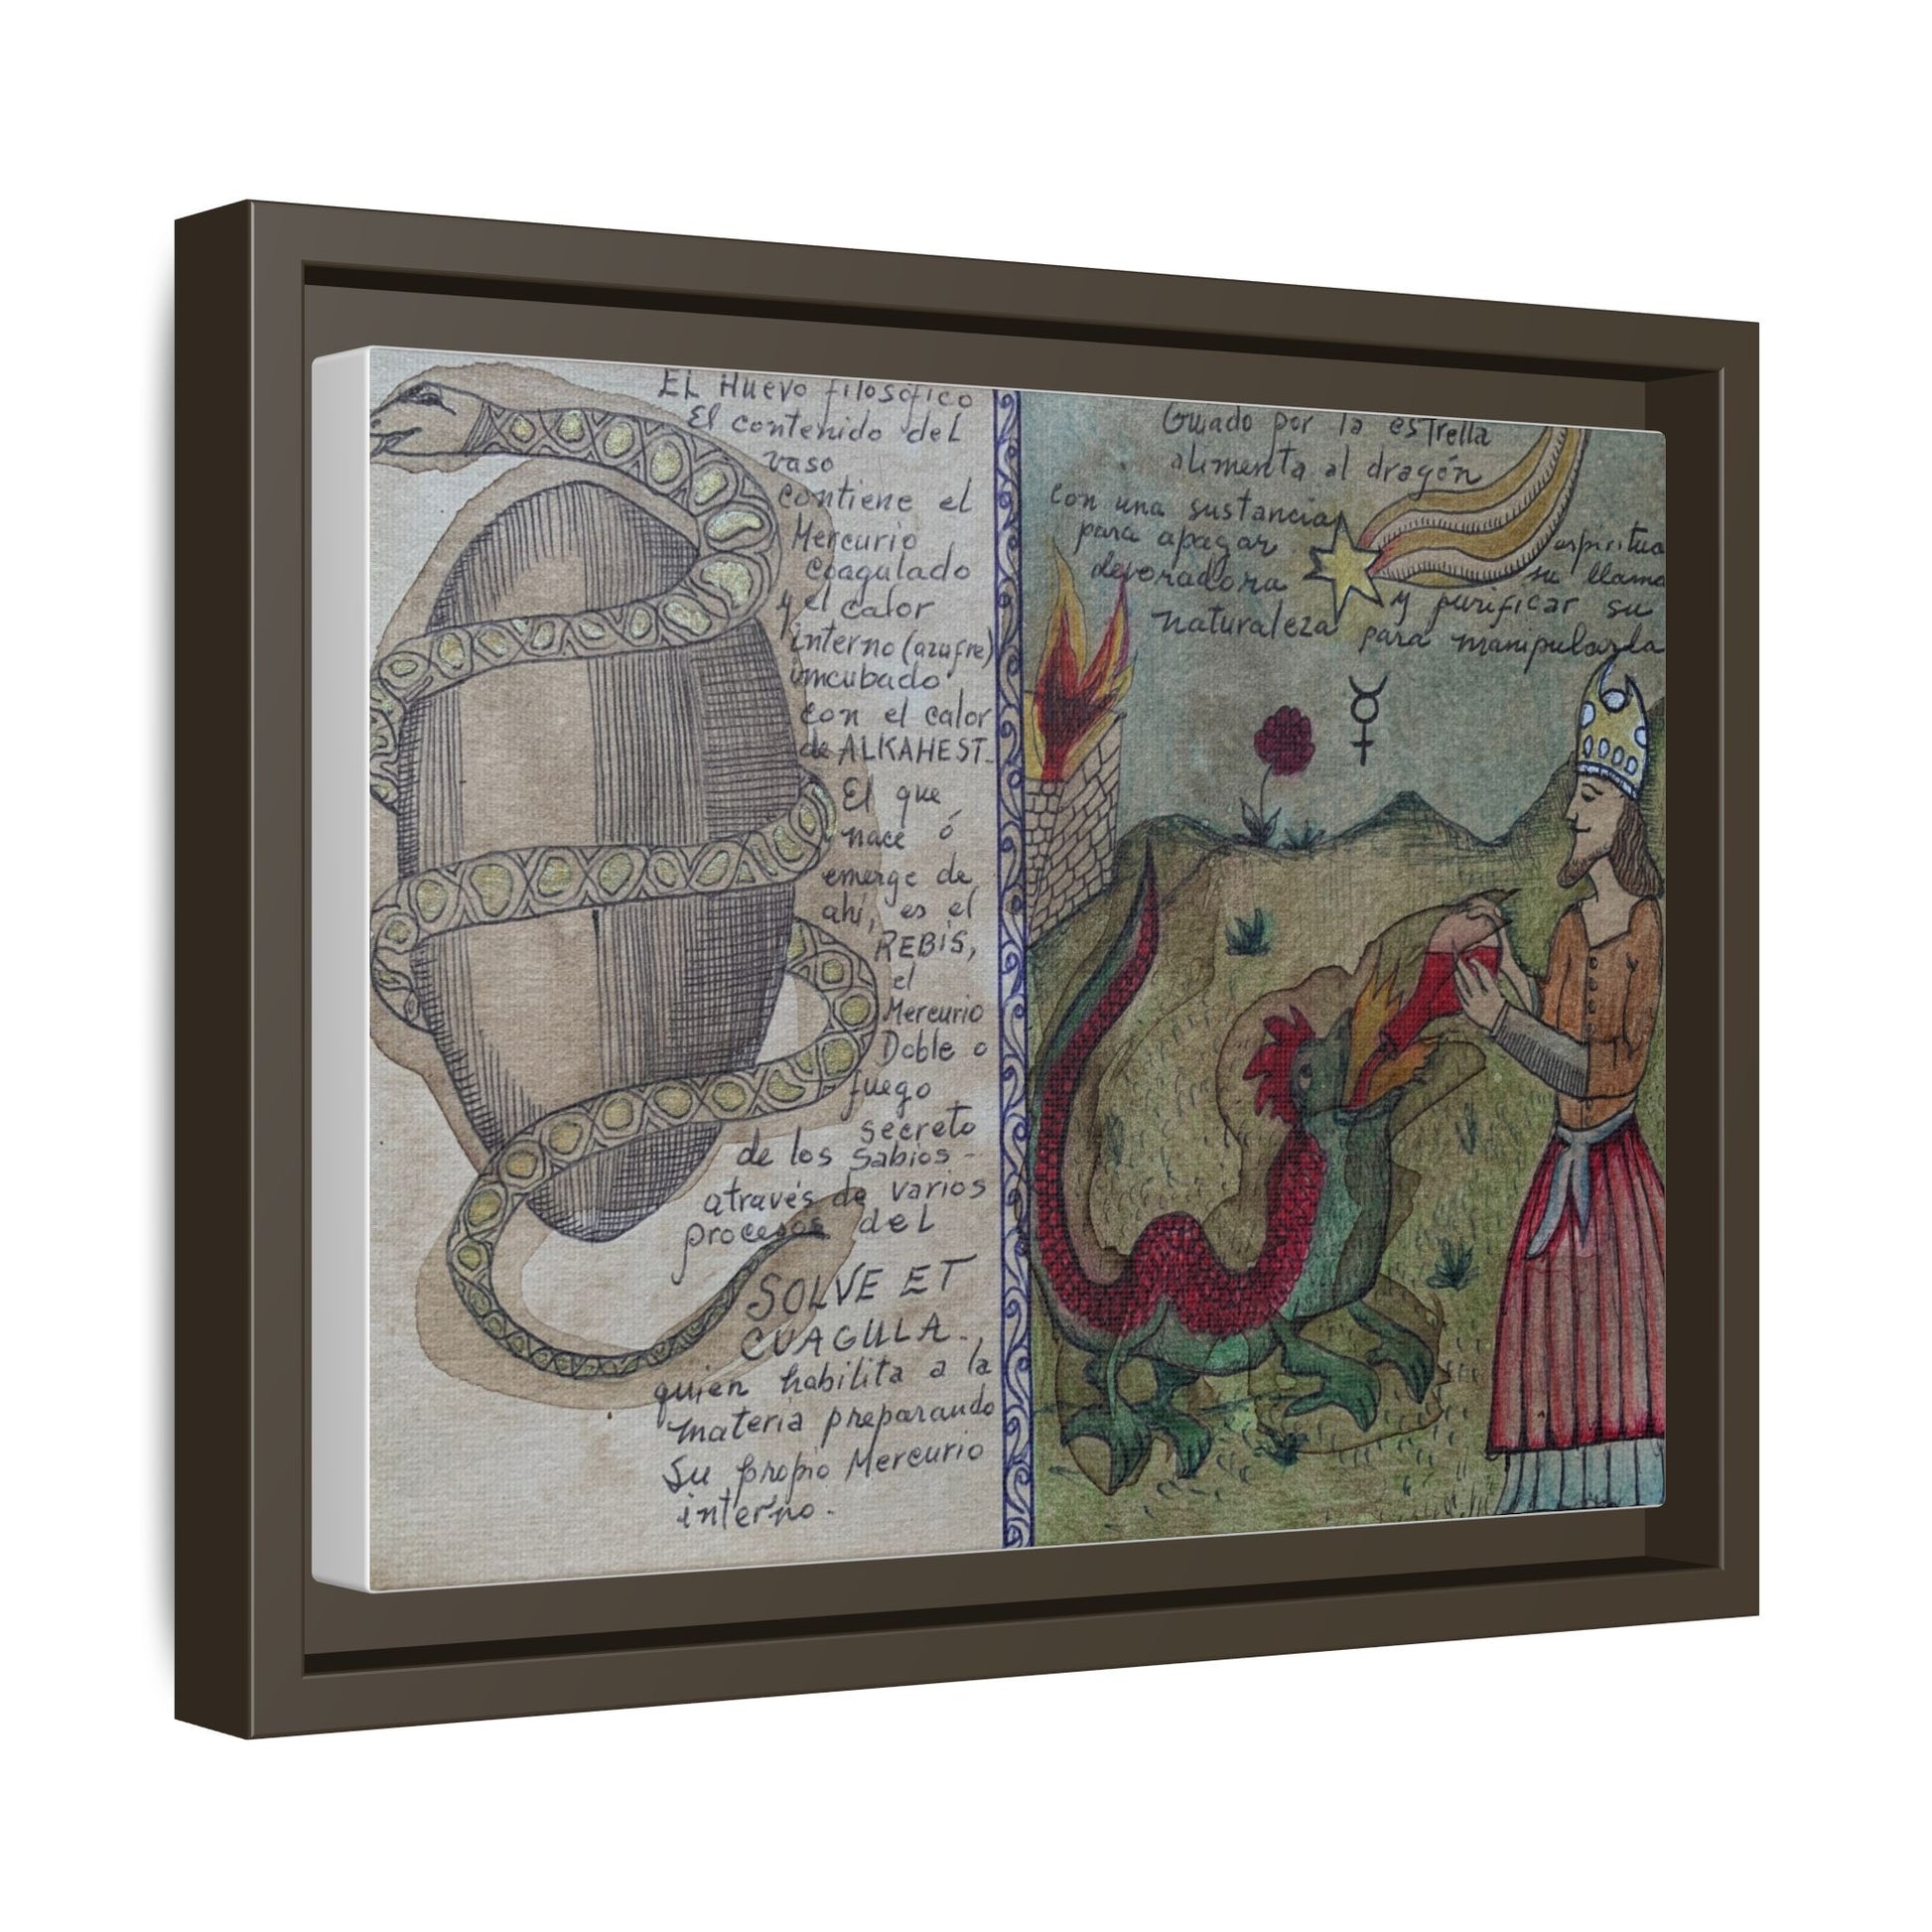 EL Huevo filosófico
El contenido del
vaso
contiene el
Mercurio
coagulado
y el calor
interno (azufre)
incubado
con el calor
de ALKAHEST-
El que
nace ó
emerge de
ahí, es el
REBIS,
el
Mercurio
Doble o
fuego
secreto
de los Sabios -
através de varios
procesos del
SOLVE ET
CUAGULA.,
quien habilita a la
materia preparando
Su propio Mercurio
interno.
Guiado por la estrella
alimenta al dragón
con una sustancia espiritua
para apagar su llama
devoradora y purificar su
naturaleza para manipularla